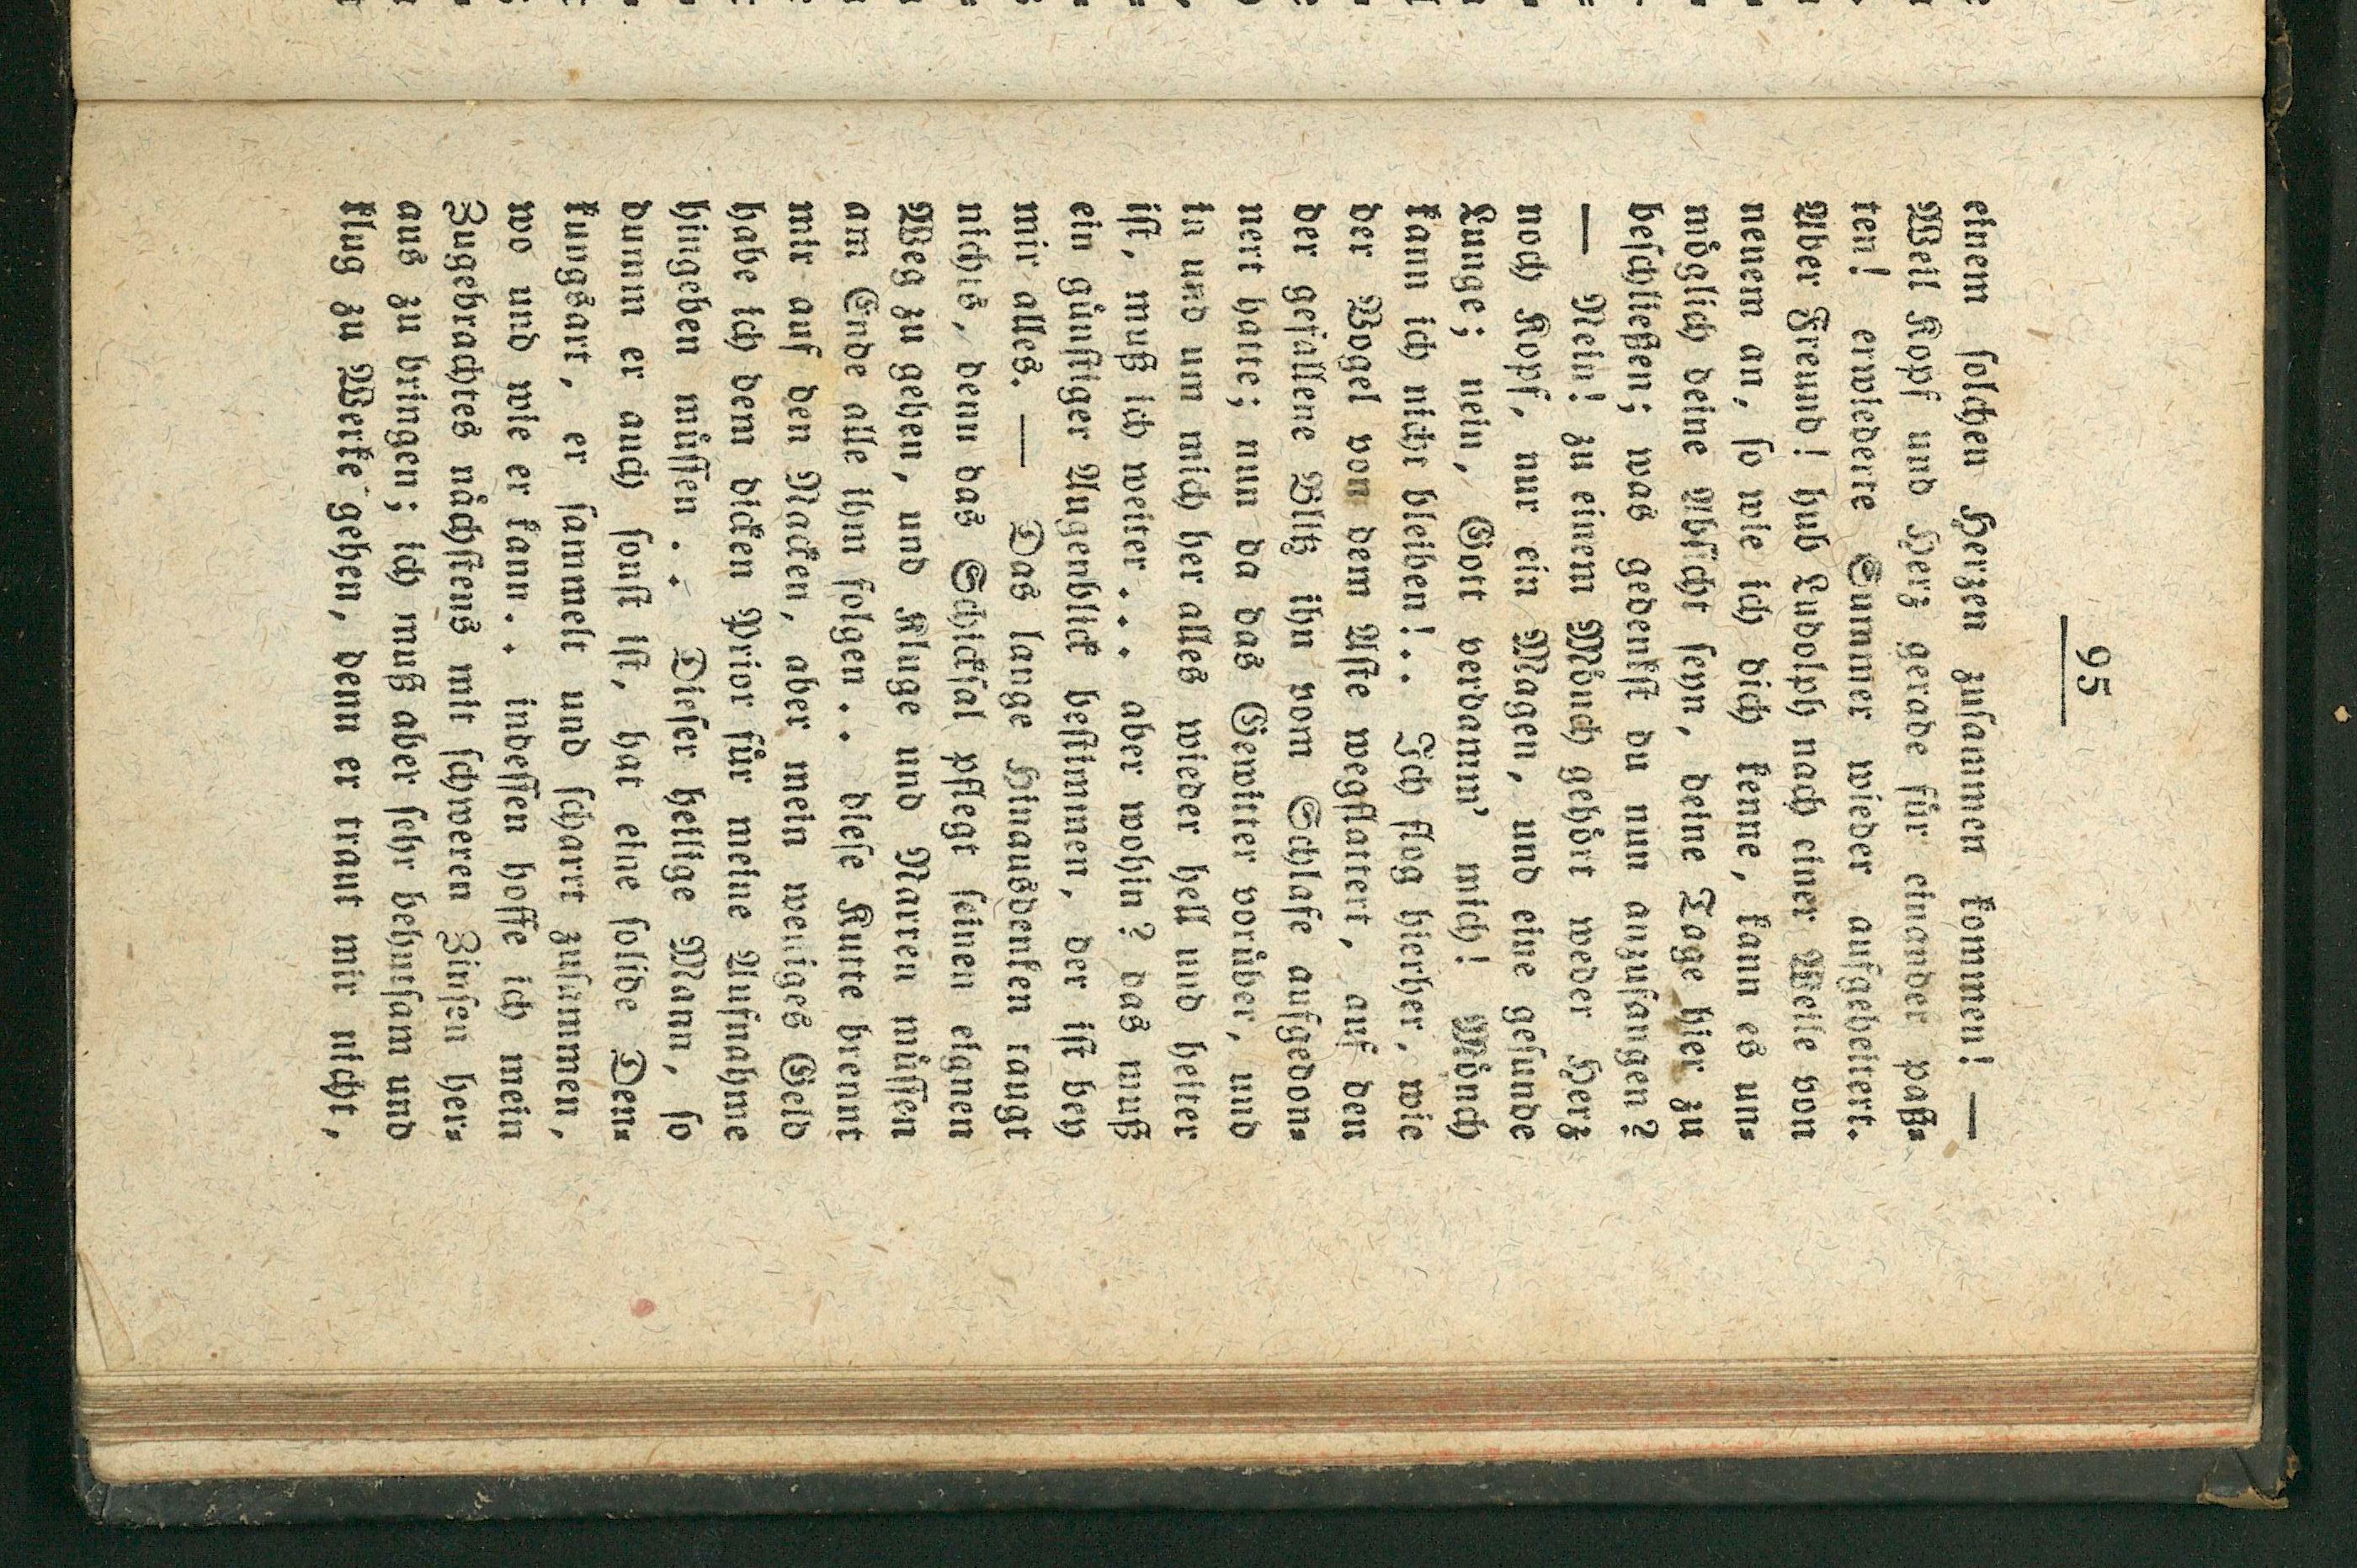 95
einem ſolchen Herzen zuſammen kommen! —
Weil Kopf und Herz gerade für einander paß⸗
ten! erwiederte Summer wieder aufgeheitert.
Aber Freund! hub Ludolph nach einer Weile von
neuem an, ſo wie ich dich kenne, kann es un⸗
möglich deine Abſicht ſeyn, deine Tage hier zu
beſchließen; was gedenkſt du nun anzufangen?
— Nein! zu einem Mönch gehört weder Herz
noch Kopf, nur ein Magen, und eine geſunde
Lunge; nein, Gott verdamm' mich! Mönch
kann ich nicht bleiben!.. Ich flog hierher, wie
der Vogel von dem Aſte wegflattert, auf den
der gefallene Blitz ihn vom Schlafe aufgedon⸗
nert hatte; nun da das Gewitter vorüber, und
in und um mich her alles wieder hell und heiter
iſt, muß ich weiter... aber wohin? das muß
ein günſtiger Augenblick beſtimmen, der iſt bey
mir alles. — Das lange Hinausdenken taugt
nichts, denn das Schickſal pflegt ſeinen eignen
Weg zu gehen, und Kluge und Narren müſſen
am Ende alle ihm folgen.. dieſe Kutte brennt
mir auf den Nacken, aber mein weniges Geld
habe ich dem dicken Prior für meine Aufnahme
hingeben müſſen.. Dieſer heilige Mann, ſo
dumm er auch ſonſt iſt, hat eine ſolide Den⸗
kungsart, er ſammelt und ſcharrt zuſammen,
wo und wie er kann.. indeſſen hoffe ich mein
Zugebrachtes nächſtens mit ſchweren Zinſen her⸗
aus zu bringen; ich muß aber ſehr behutſam und
klug zu Werke gehen, denn er traut mir nicht,